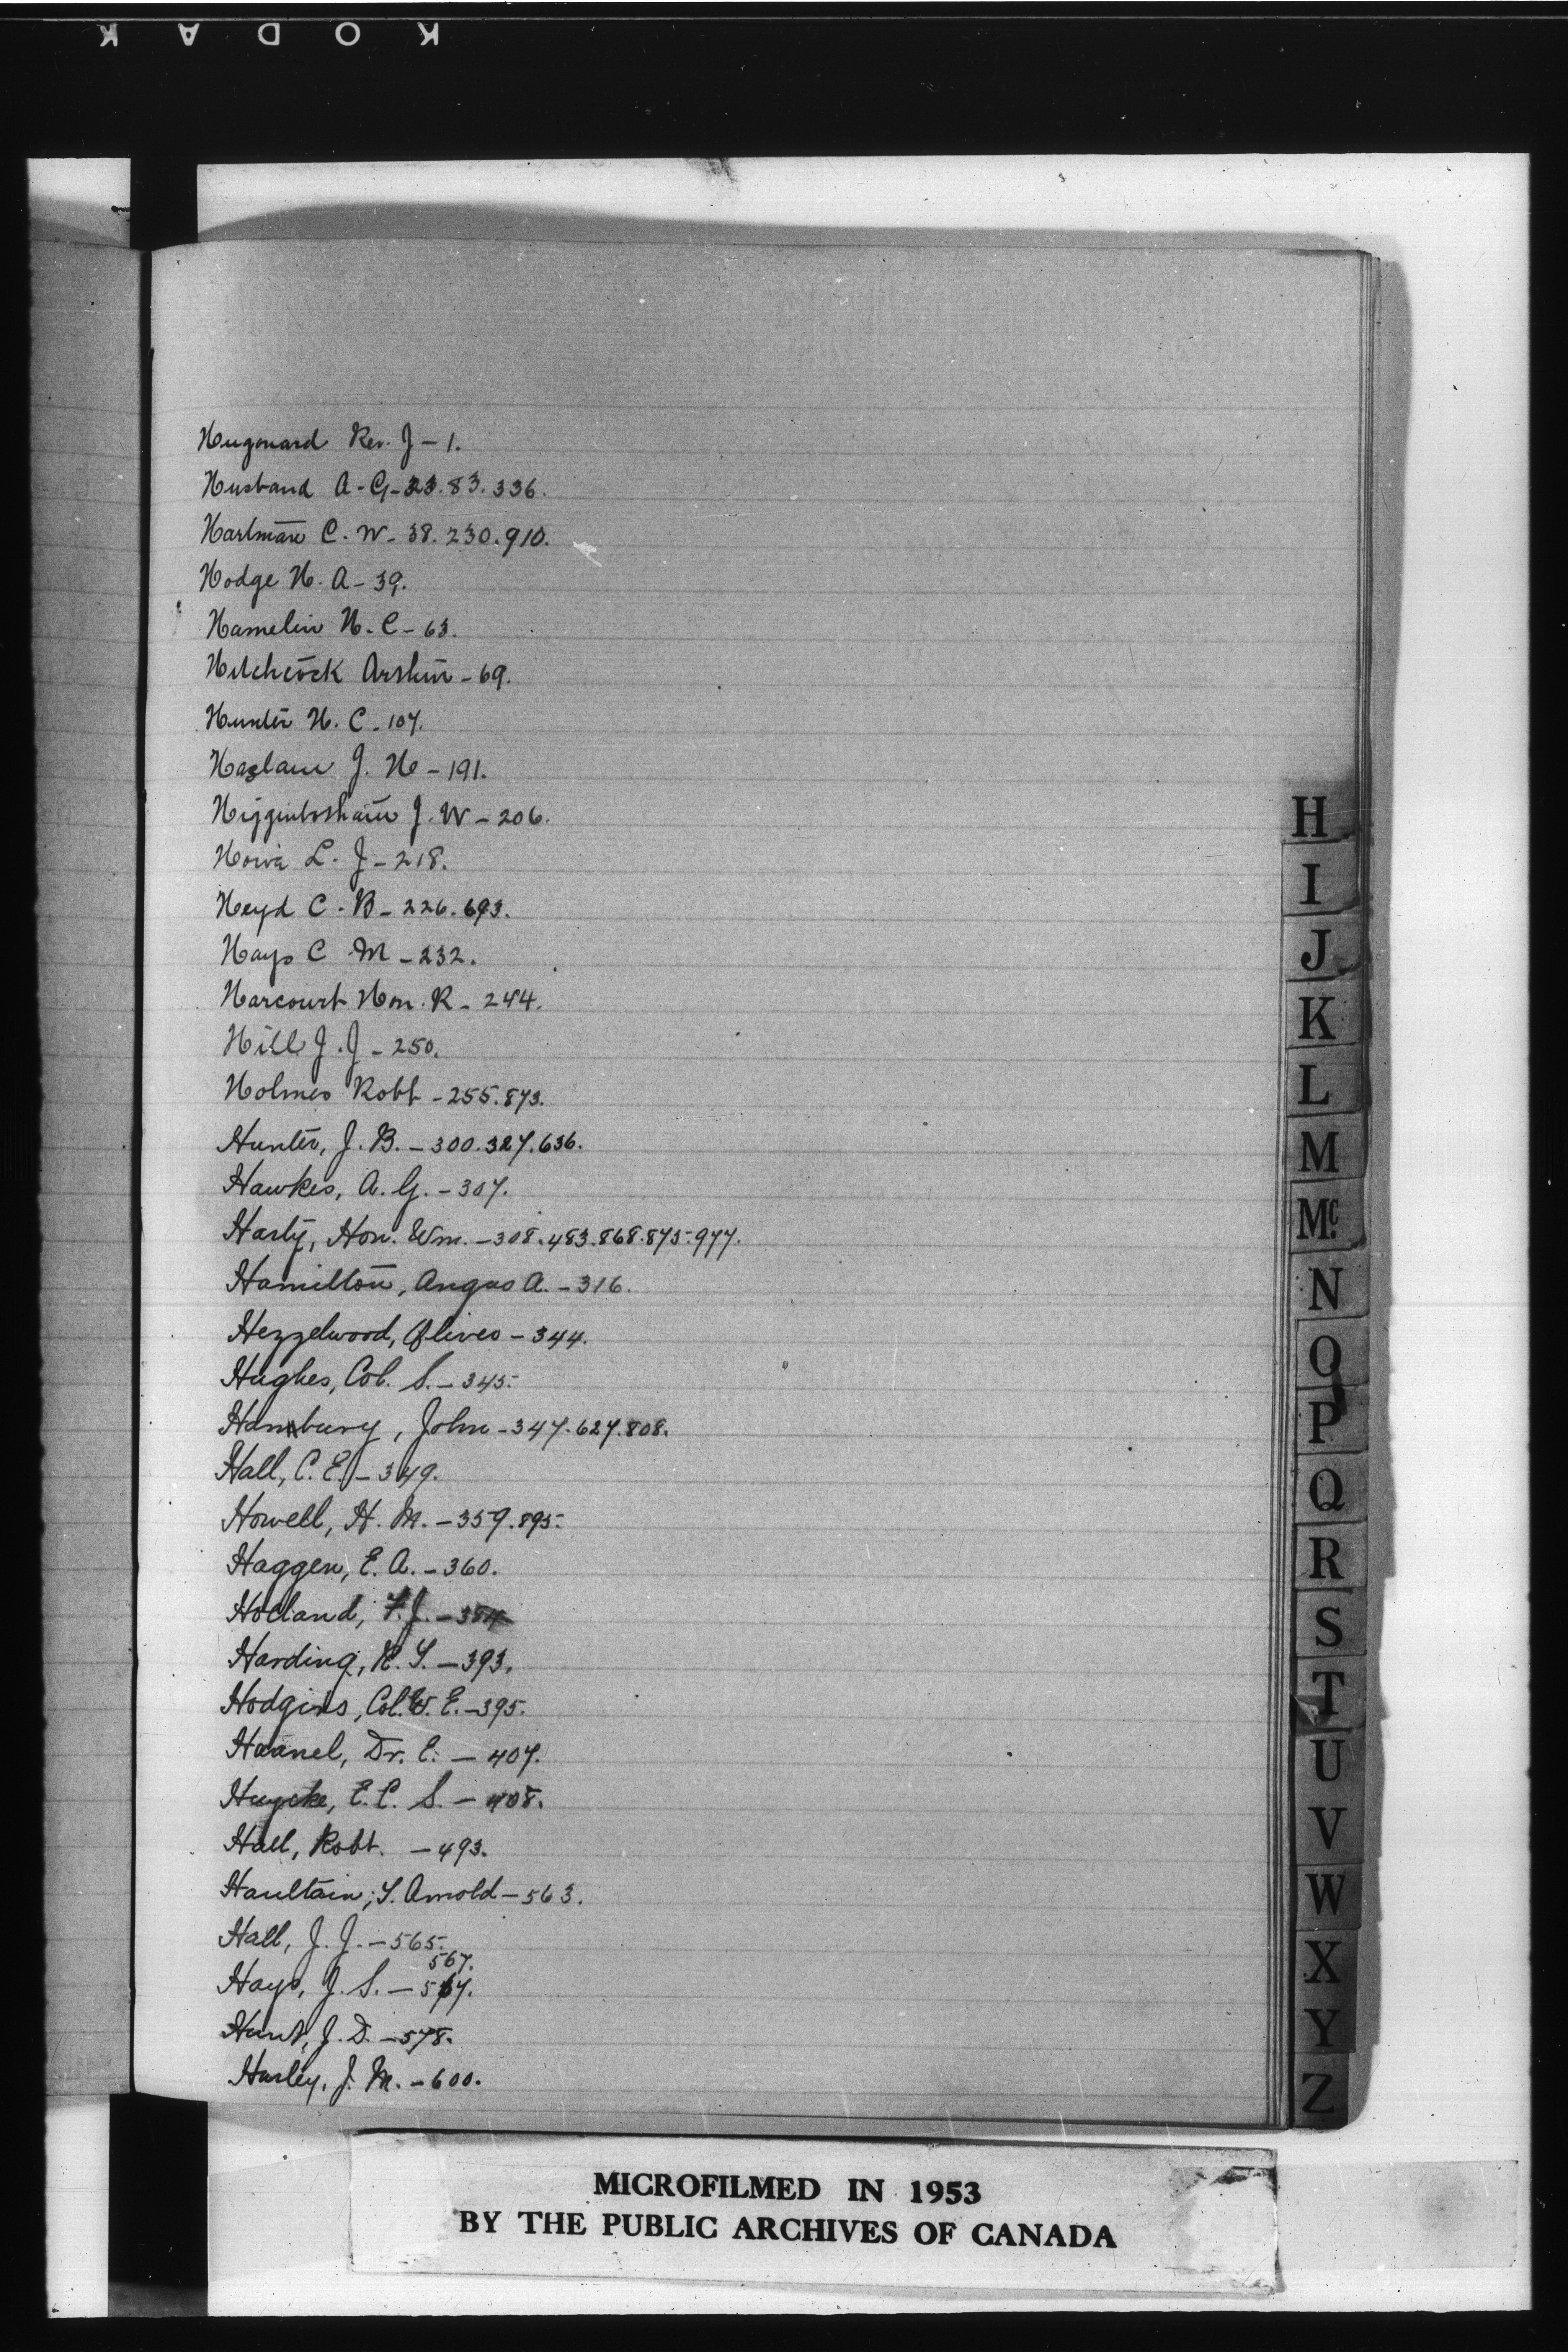 KODAK
Hugonard Rev. J - 1.
Husband A. G - 23. 83. 336.
Hartman C. W - 38. 230. 910.
Hodge H. A - 39.
Hamelin H. C - 63.
Hitchcock Arthur - 69.
Hunter H. C - 107.
Haslam J. H - 191.
Higginbotham J. W - 206.
L. J - 218.
Heyd C. B - 226. 693.
Hays C M - 232.
Harcourt Hon. R - 244.
Hill J. J - 250.
Holmes Robt - 255. 873.
Hunter, J. B. - 300. 327. 636.
Hawkes, A. G. - 307.
Harty, Hon. Wm. - 308. 483. 868. 875. 977.
Hamilton, Angus A. - 316.
Hezzelwood, Oliver - 344.
Hughes, Col. S. - 345.
Hanbury, John - 347. 627. 808.
Hall, C. E. - 349.
Howell, H. M. - 359. 895.
Haggen, E. A. - 360.
Holland, F. J. - 384
Harding, R. Y. - 393.
Hodgins, Col. W. E. - 395.
Haanel, Dr. E. - 407.
Huycke, E. C. S. - 408.
Hall, Robt. - 493.
Haultain, T. Arnold - 563.
Hall, J. J. - 565.
567.
Hays, J. S. - 567.
Hunt, J. D. - 578.
Harley, J. M. - 600.
H
I
J
K
L
M
Mc.
N
O
P
Q
R
S
T
U
V
W
X
Y
Z
MICROFILMED IN 1953
BY THE PUBLIC ARCHIVES OF CANADA